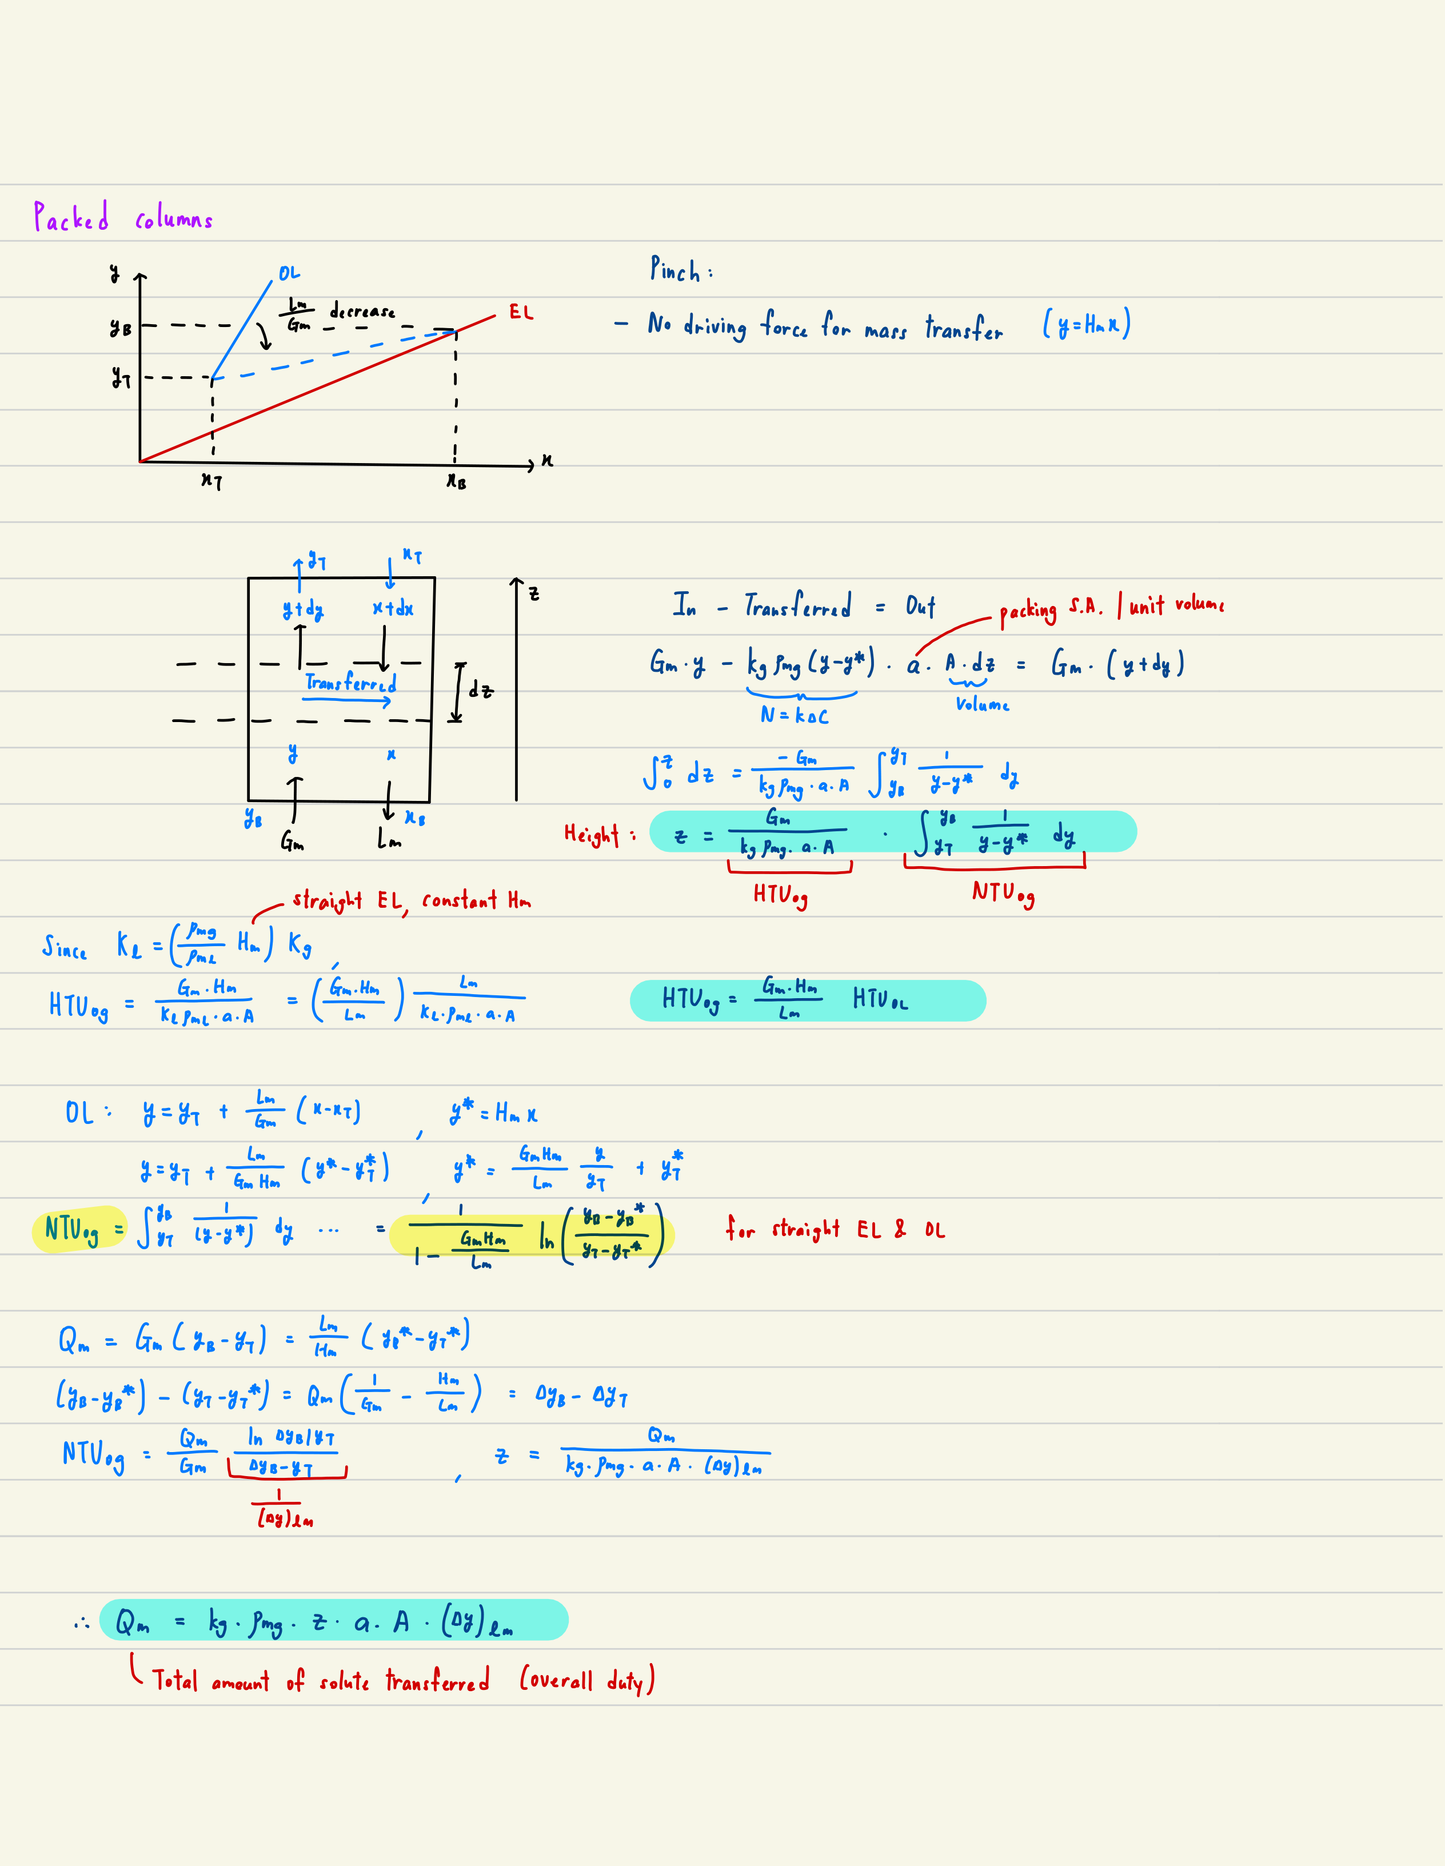 Packed columns
y
OL
Lm/Gm decrease
EL
yB
yT
xT
xB
x
Pinch :
– No driving force for mass transfer (y = Hm x)
yT
xT
y+dy
x+dx
Transferred
y
x
yB
xB
Gm
Lm
dz
z
In - Transferred = Out
packing S.A. / unit volume
Gm · y - kg ρmg (y-y*) · a · A · dz = Gm · (y+dy)
N = kΔC
Volume
∫₀ᶻ dz = -Gm/(kg ρmg · a · A) ∫_yB^yT 1/(y-y*) dy
Height : z = Gm/(kg ρmg · a · A) · ∫_yT^yB 1/(y-y*) dy
HTUog
NTUog
straight EL, constant Hm
Since Kl = (ρmg/ρml Hm) Kg ,
HTUog = Gm·Hm/(Kl ρml · a · A) = (Gm·Hm/Lm) Lm/(Kl · ρml · a · A)
HTUog = Gm·Hm/Lm HTUOL
OL : y = yT + Lm/Gm (x-xT) , y* = Hm x
y = yT + Lm/(Gm Hm) (y* - yT*) , y* = GmHm/Lm y/yT + yT*
NTUog = ∫_yT^yB 1/(y-y*) dy ... = 1/(1 - GmHm/Lm) ln((yB-yB*)/(yT-yT*)) for straight EL & OL
Qm = Gm (yB-yT) = Lm/Hm (yB*-yT*)
(yB-yB*) - (yT-yT*) = Qm (1/Gm - Hm/Lm) = ΔyB - ΔyT
NTUog = Qm/Gm (ln ΔyB/yT)/(ΔyB-yT) , z = Qm/(kg · ρmg · a · A · (Δy)lm)
1/(Δy)lm
∴ Qm = kg · ρmg · z · a · A · (Δy)lm
Total amount of solute transferred (overall duty)